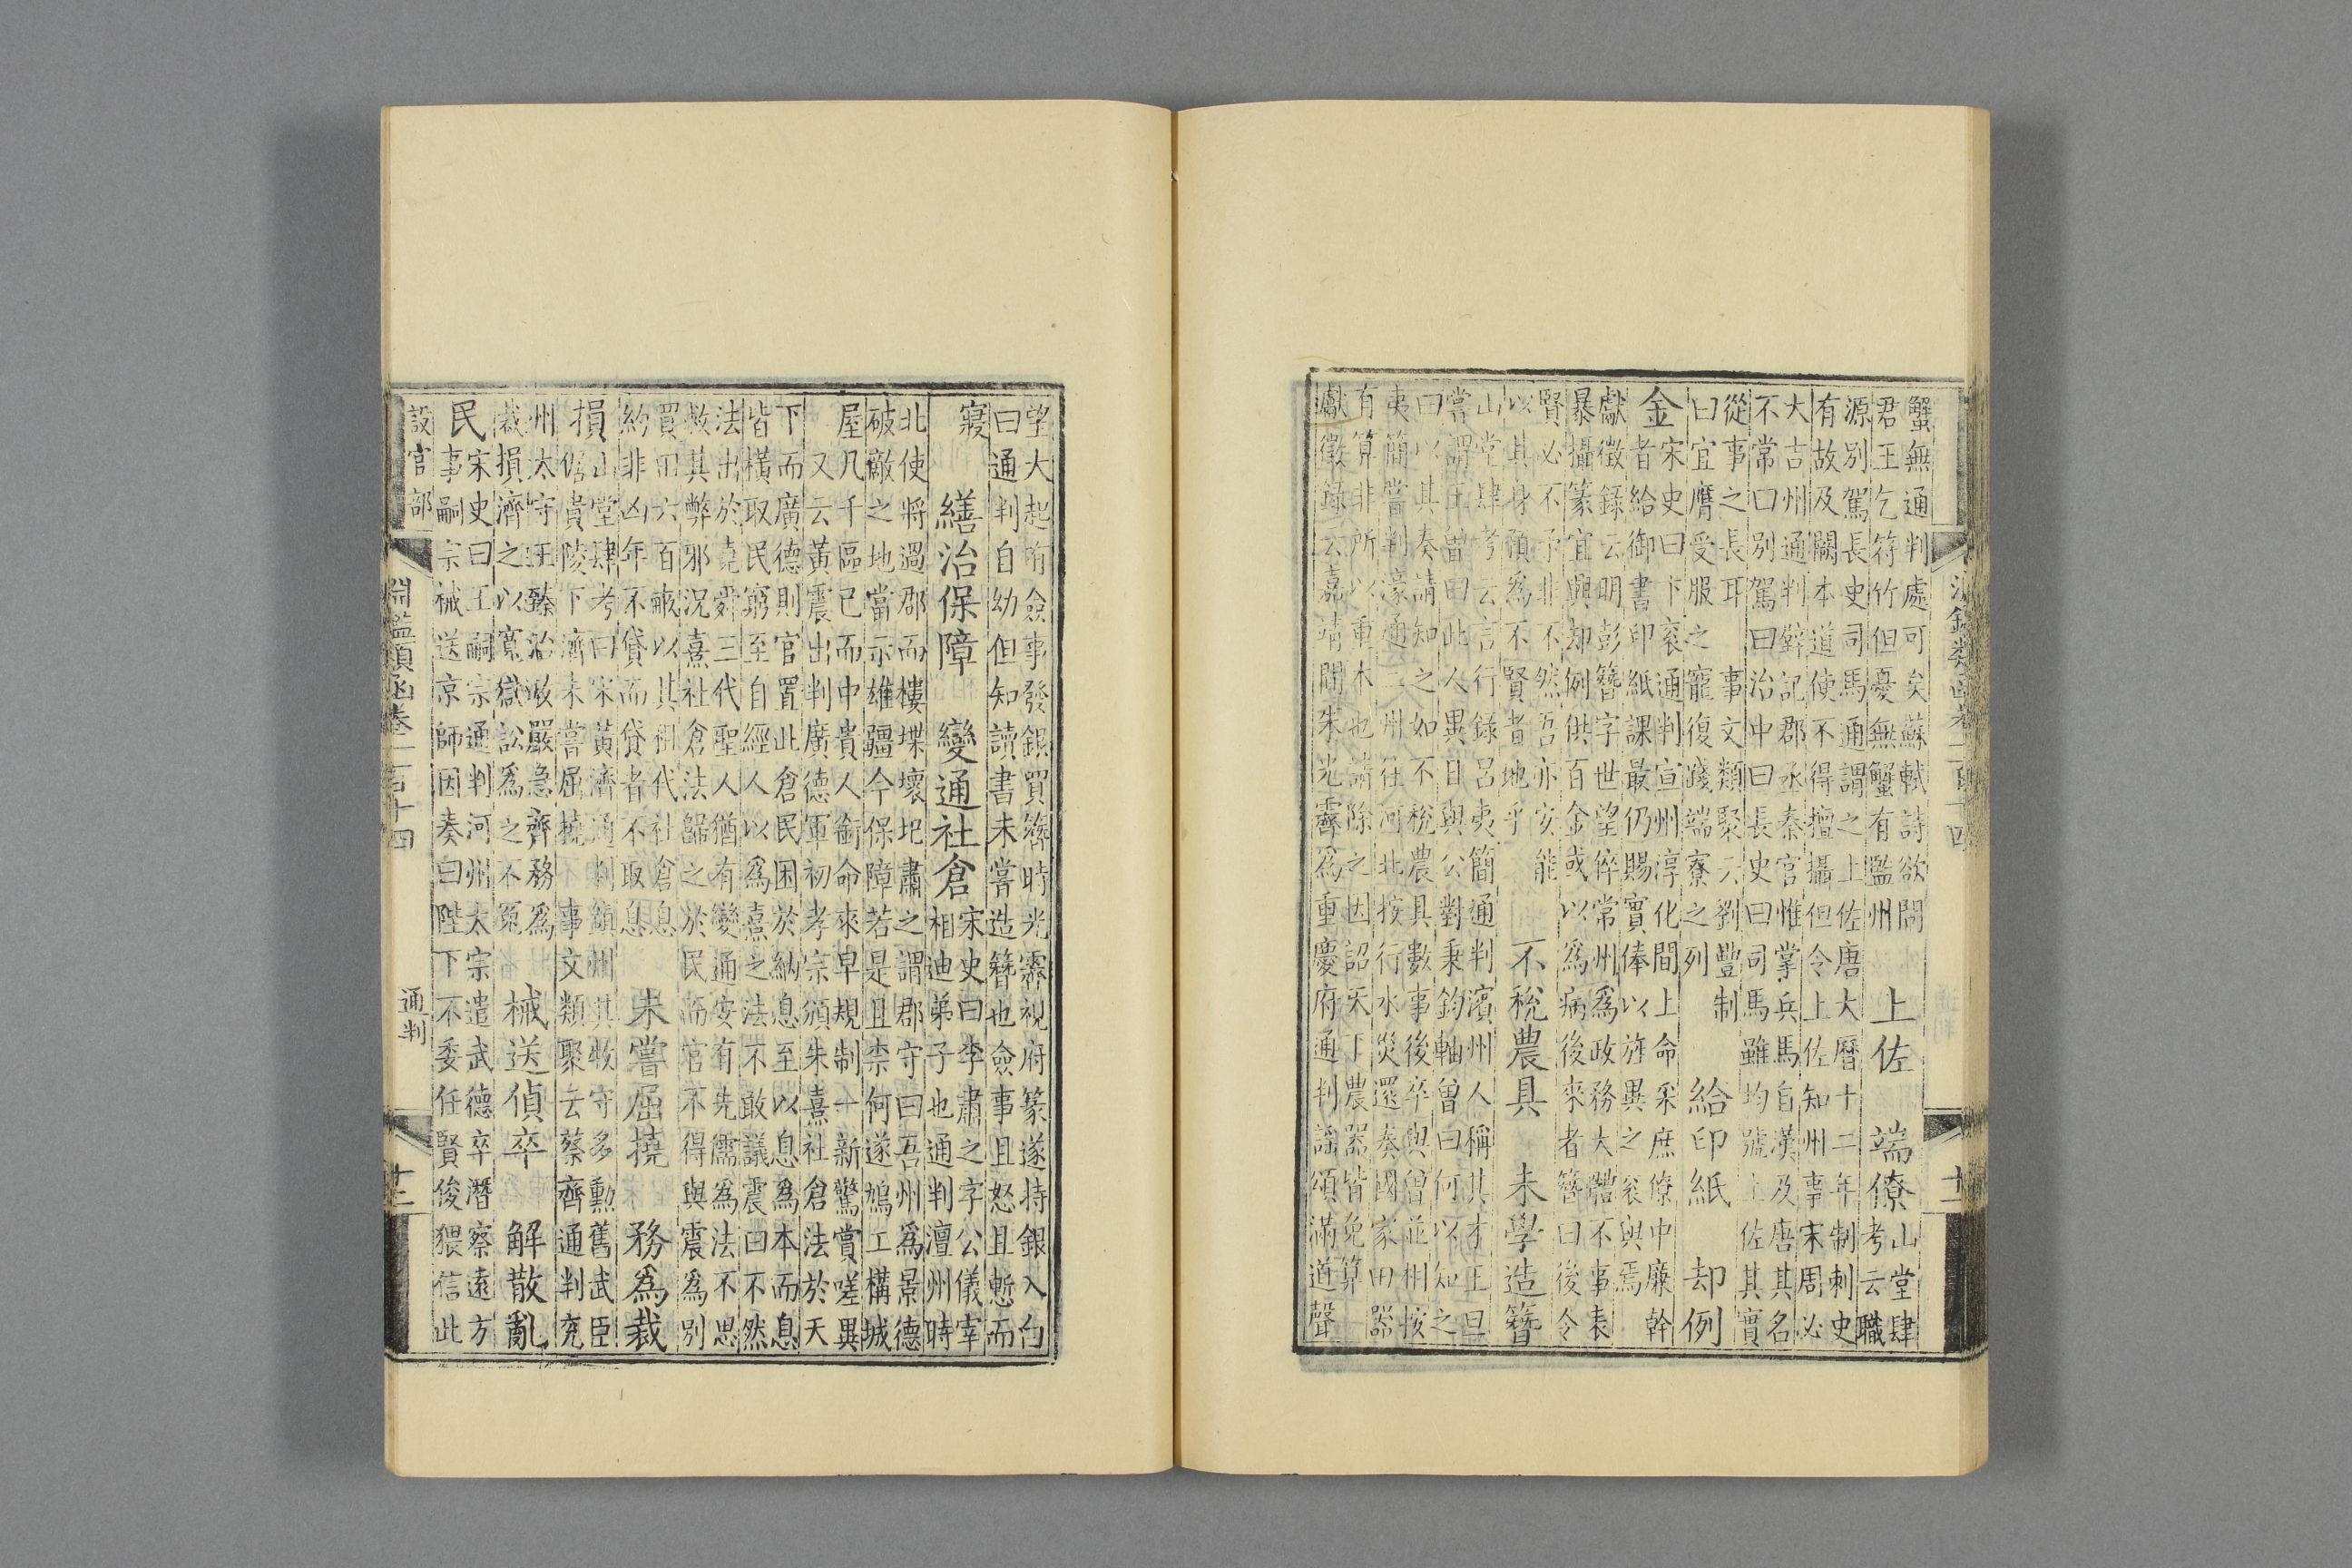 淵鑑類函卷一百十四 通判 十一
蟹無通判處可矣蘇軾詩欲問
君王乞符竹但憂無蟹有監州
上佐 端僚
山堂肆
考云職
源別駕長史司馬通謂之上佐唐大曆十二年制刺史
有故及闕本道使不得擅攝但令上佐知州事宋周必
大吉州通判廳記郡丞秦官惟掌兵馬自漢及唐其名
不常曰別駕曰治中曰長史曰司馬雖均號上佐其實
從事之長耳 事文類聚云劉豐制
曰宜膺受服之寵復踐端寮之列
給印紙 却例
金
宋史曰卞袞通判宣州淳化間上命采庶僚中廉幹
者給御書印紙課最仍賜實俸以旌異之袞與焉
獻徵錄云明彭簪字世望倅常州爲政務大體不事表
暴攝篆宜興却例供百金或以爲病後來者簪曰後令
賢必不予非不然吾亦安能
以其身預爲不賢者地乎
不稅農具 未學造簪
山堂肆考云言行錄呂夷簡通判濱州人稱其才王旦
嘗謂王曾曰此人異日與公對秉鈞軸曾曰何以知之
曰以其奏請知之如不稅農具數事後卒與曾並相按
夷簡嘗判濠通二州往河北按行水災還奏國家田器
有算非所以重本也請除之因詔天下農器皆免算
獻徵錄云嘉靖間朱光霽爲重慶府通判謠頌滿道聲
望大起有僉事發銀買簪時光霽視府篆遂持銀入白
曰通判自幼但知讀書未嘗造簪也僉事且怒且慙而
寢 繕治保障 變通社倉
宋史曰李肅之字公儀宰
相迪弟子也通判澶州時
北使將過郡而樓堞壞圮肅之謂郡守曰吾州爲景德
破敵之地當示雄疆今保障若是且柰何遂鳩工構城
屋凡千區已而中貴人銜命來早規制一新驚賞嗟異
又云黃震出判廣德軍初孝宗頒朱熹社倉法於天
下而廣德則官置此倉民困於納息至以息爲本而息
皆橫取民窮至自經人以爲熹之法不敢議震曰不然
法出於堯舜三代聖人猶有變通安有先儒爲法不思
救其弊邪況熹社倉法歸之於民而官不得與震爲別
買田六百畝以其租代社倉息
約非凶年不貸而貸者不取息
未嘗屈撓 務爲裁
損
山堂肆考曰宋黃濟通判鎮州其牧守多勳舊武臣
倨貴陵下濟未嘗屈撓 事文類聚云蔡齊通判兗
州太守王臻治政嚴急齊務爲
裁損濟之以寬獄訟爲之不冤
械送偵卒 解散亂
民
宋史曰王嗣宗通判河州太宗遣武德卒潛察遠方
事嗣宗械送京師因奏曰陛下不委任賢俊猥信此
設官部 淵鑑類函卷一百十四 通判 十二